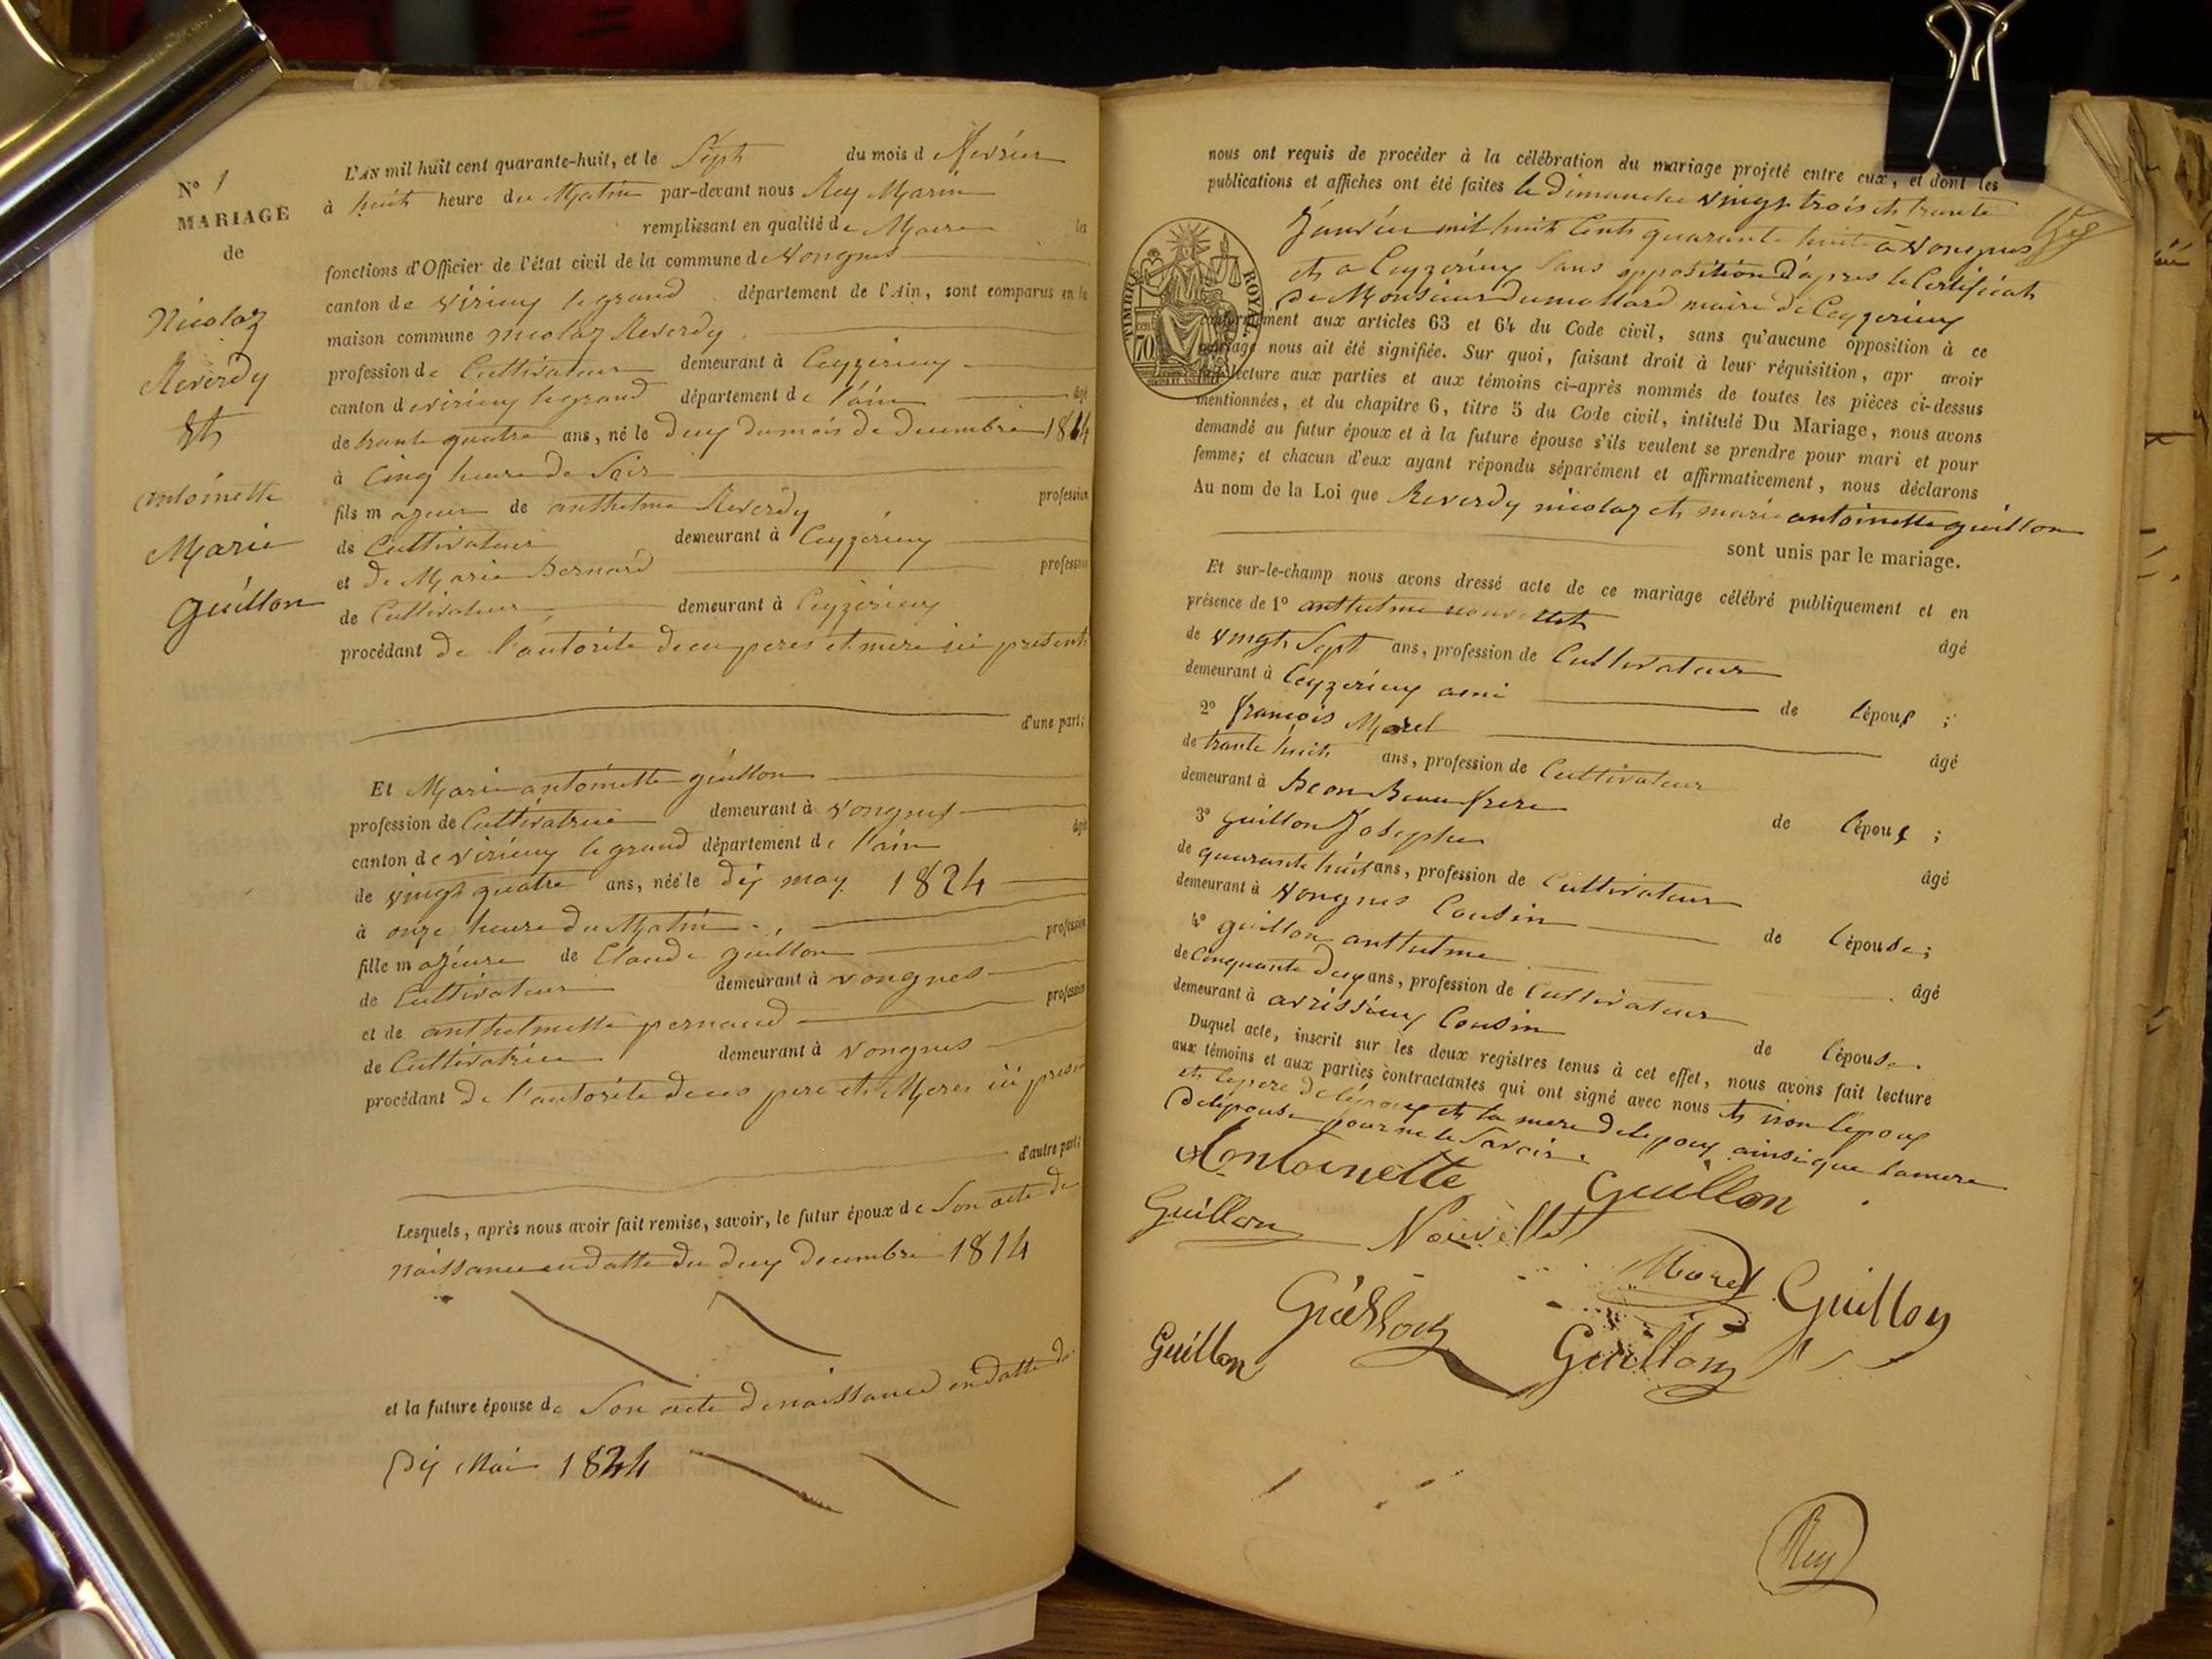 N° 1
MARIAGE
de
Nicolaz
Reverdy
Et
antoinette
Marie
guillon
L'AN mil huit cent quarante-huit, et le Sept du mois d fevrier
à huit heure du Matin par-devant nous Rey Marin
remplissant en qualité de Maire les
fonctions d'Officier de l'état civil de la commune de Vongnes
canton de virieu legrand département de l'Ain, sont comparus en la
maison commune nicolaz Reverdy
profession de Cultivateur demeurant à Ceyzerieu
canton de virieu legrand département de l'ain âgé
de trante quatre ans, né le deux du mois de decembre 1814
à Cinq heure de Soir
fils majeur de anthelme Reverdy profession
de Cultivateur demeurant à Ceyzerieu
et de Marie Bernard profession
de Cultivateur demeurant à Ceyzerieu
procédant de l'autorité de ceux peres et mere ici present
d'une part;
Et Marie antoinette guillon
profession de Cultivatrice demeurant à vongnes
canton de virieu legrand département de l'ain âgée
de vingt quatre ans, née le dix may 1824
à onze heure du Matin
fille majeure de Claude guillon profession
de Cultivateur demeurant à vongnes
et de anthelmette pernaud profession
de Cultivatrice demeurant à Vongnes
procédant de l'autorité de ces pere et Meres ici presen
d'autre part;
Lesquels, après nous avoir fait remise, savoir, le futur époux de Son acte de
naissance en datte du deux decembre 1814
et la future épouse de Son acte de naissance en datte de
Dix Mai 1824
nous ont requis de procéder à la célébration du mariage projeté entre eux, et dont les
publications et affiches ont été faites le dimanche vingt trois et trante
Janvier mil huit Cent quarante huit à Vongnes
et a Ceyzerieu Sans opposition d'apres le Certificat
de Monsieur dumollard maire de Ceyzerieu
TIMBRE ROYAL
70
conformément aux articles 63 et 64 du Code civil, sans qu'aucune opposition à ce
mariage nous ait été signifiée. Sur quoi, faisant droit à leur réquisition, apr avoir
lecture aux parties et aux témoins ci-après nommés de toutes les pièces ci-dessus
mentionnées, et du chapitre 6, titre 5 du Code civil, intitulé Du Mariage, nous avons
demandé au futur époux et à la future épouse s'ils veulent se prendre pour mari et pour
femme; et chacun d'eux ayant répondu séparément et affirmativement, nous déclarons
Au nom de la Loi que Reverdy nicolaz et marie antoinette guillon
sont unis par le mariage.
Et sur-le-champ nous avons dressé acte de ce mariage célébré publiquement et en
présence de 1° anthelme nouvellet
âgé
de vingt Sept ans, profession de Cultivateur
demeurant à Ceyzerieu ami de l'époux ;
2° françois Morel
âgé
de trante huit ans, profession de Cultivateur
demeurant à Beon Beau frere de l'époux ;
3° guillon Josephe
âgé
de quarante huit ans, profession de Cultivateur
demeurant à Vongnes Cousin de l'épouse ;
4° guillon anthelme
âgé
de Cinquante deux ans, profession de Cultivateur
demeurant à avrissieu Cousin de l'épouse.
Duquel acte, inscrit sur les deux registres tenus à cet effet, nous avons fait lecture
aux témoins et aux parties contractantes qui ont signé avec nous et non l'epoux
et le pere de l'epoux et la mere de lepoux ainsi que la mere
de lepouse pour ne le Savoir.
Antoinette Guillon
Guillon Nouvellet
Morel Guillon
Guillon
Guillon Guillon
Rey